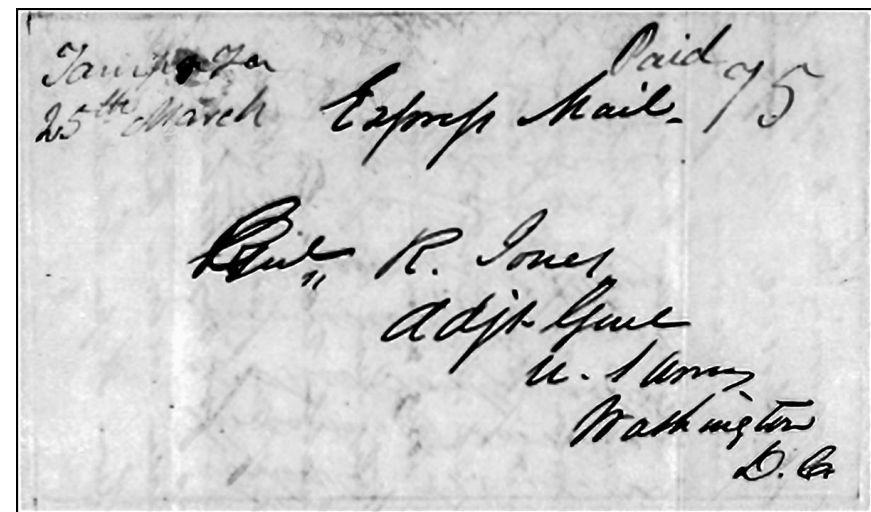 Tampa Fa
25th March
Paid 75
Express Mail.
Genl R. Jones
Adjt Genl
U. S Army
Washington
D. Ca